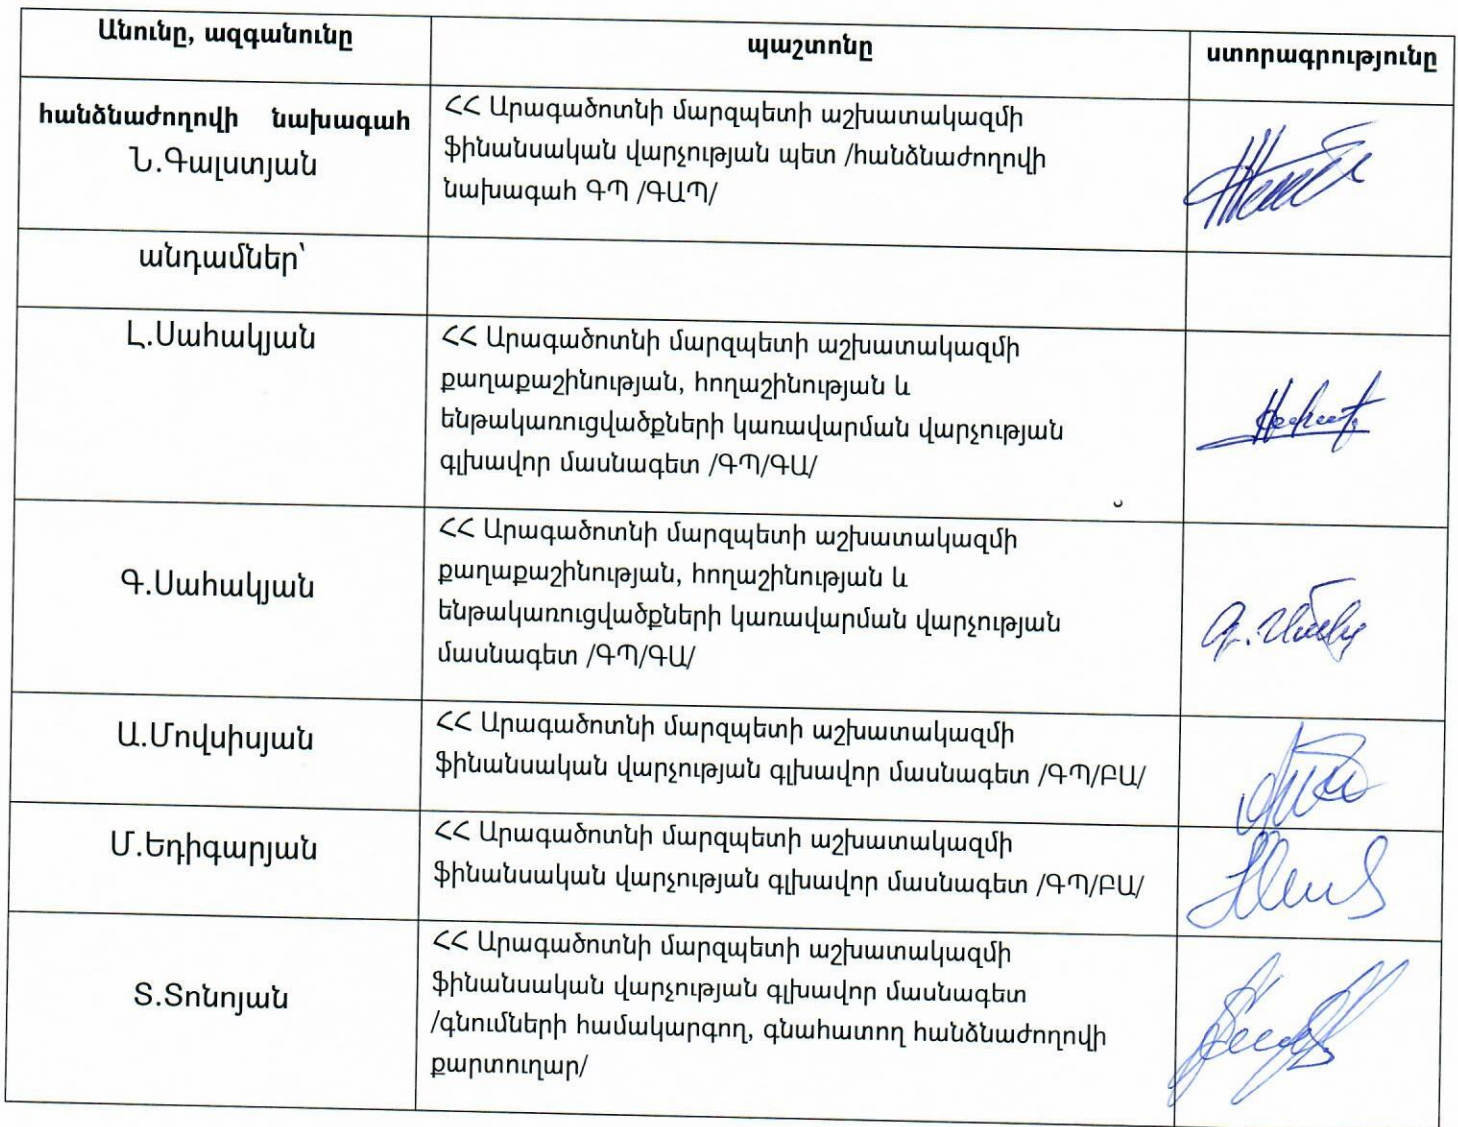 Անունը, ազգանունը
պաշտոնը
ստորագրությունը
հանձնաժողովի նախագահ
Ն.Գալստյան
ՀՀ Արագածոտնի մարզպետի աշխատակազմի
ֆինանսական վարչության պետ /հանձնաժողովի
նախագահ ԳՊ /ԳԱՊ/
անդամներ՝
Լ.Սահակյան
ՀՀ Արագածոտնի մարզպետի աշխատակազմի
քաղաքաշինության, հողաշինության և
ենթակառուցվածքների կառավարման վարչության
գլխավոր մասնագետ /ԳՊ/ԳԱ/
Գ.Սահակյան
ՀՀ Արագածոտնի մարզպետի աշխատակազմի
քաղաքաշինության, հողաշինության և
ենթակառուցվածքների կառավարման վարչության
մասնագետ /ԳՊ/ԳԱ/
Ա.Մովսիսյան
ՀՀ Արագածոտնի մարզպետի աշխատակազմի
ֆինանսական վարչության գլխավոր մասնագետ /ԳՊ/ԲԱ/
Մ.Եդիգարյան
ՀՀ Արագածոտնի մարզպետի աշխատակազմի
ֆինանսական վարչության գլխավոր մասնագետ /ԳՊ/ԲԱ/
Տ.Տոնոյան
ՀՀ Արագածոտնի մարզպետի աշխատակազմի
ֆինանսական վարչության գլխավոր մասնագետ
/գնումների համակարգող, գնահատող հանձնաժողովի
քարտուղար/